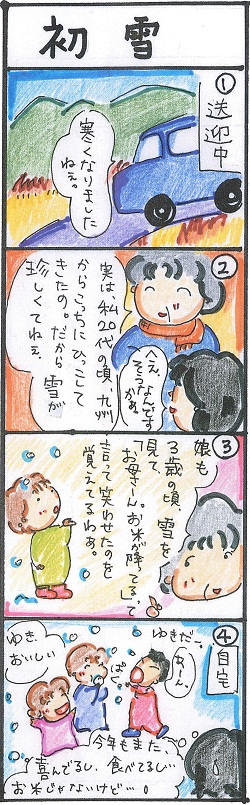 初雪
①
送迎中
寒くなりました
ねぇ。
②
実は、私20代の頃、九州
からこっちにひっこして
きたの。だから 雪が
珍しくてねぇ、
へぇ、なんです
そうかぁ。
③
娘も
3歳の頃、雪を
見て、
「お母さん。お米が降ってる」って
言って笑わせたのを
覚えてるわぁ。
④
自宅
ゆきだ〜。
あーん。
ぱくっ
ゆき、
おいしい
今年もまた、
喜んでるし、食べてるし…
お米じゃないけど…!